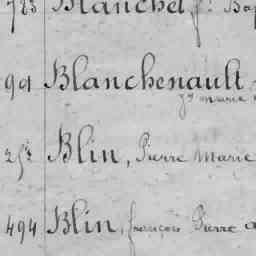 783 Blanchet, f.s Bap
991 Blanchenault
Jn marie
253 Blin, Pierre Marie
494 Blin, françois Pierre a